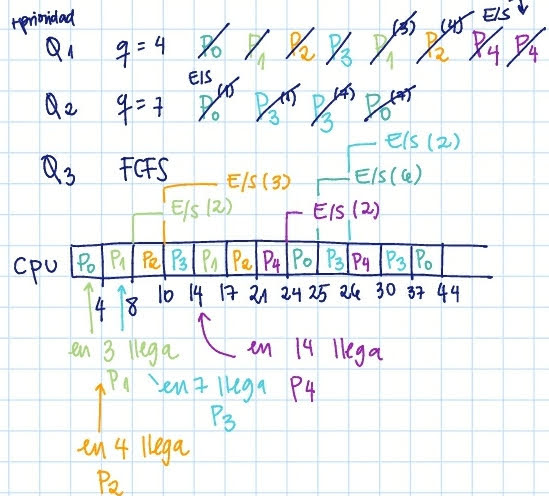 +prioridad
E/S
Q1 q = 4 P0 P1 P2 P3 P1 (3) P2 (4) P4 P4
E/S
Q2 q = 7 P0 (1) P3 (1) P3 (7) P0 (7)
E/S (2)
Q3 FCFS
E/S (6)
E/S (3)
E/S (2)
E/S (2)
CPU P0 P1 P2 P3 P1 P2 P4 P0 P3 P4 P3 P0
4 8 10 14 17 21 24 25 26 30 37 44
en 3 llega
P1
en 14 llega
P4
en 7 llega
P3
en 4 llega
P2